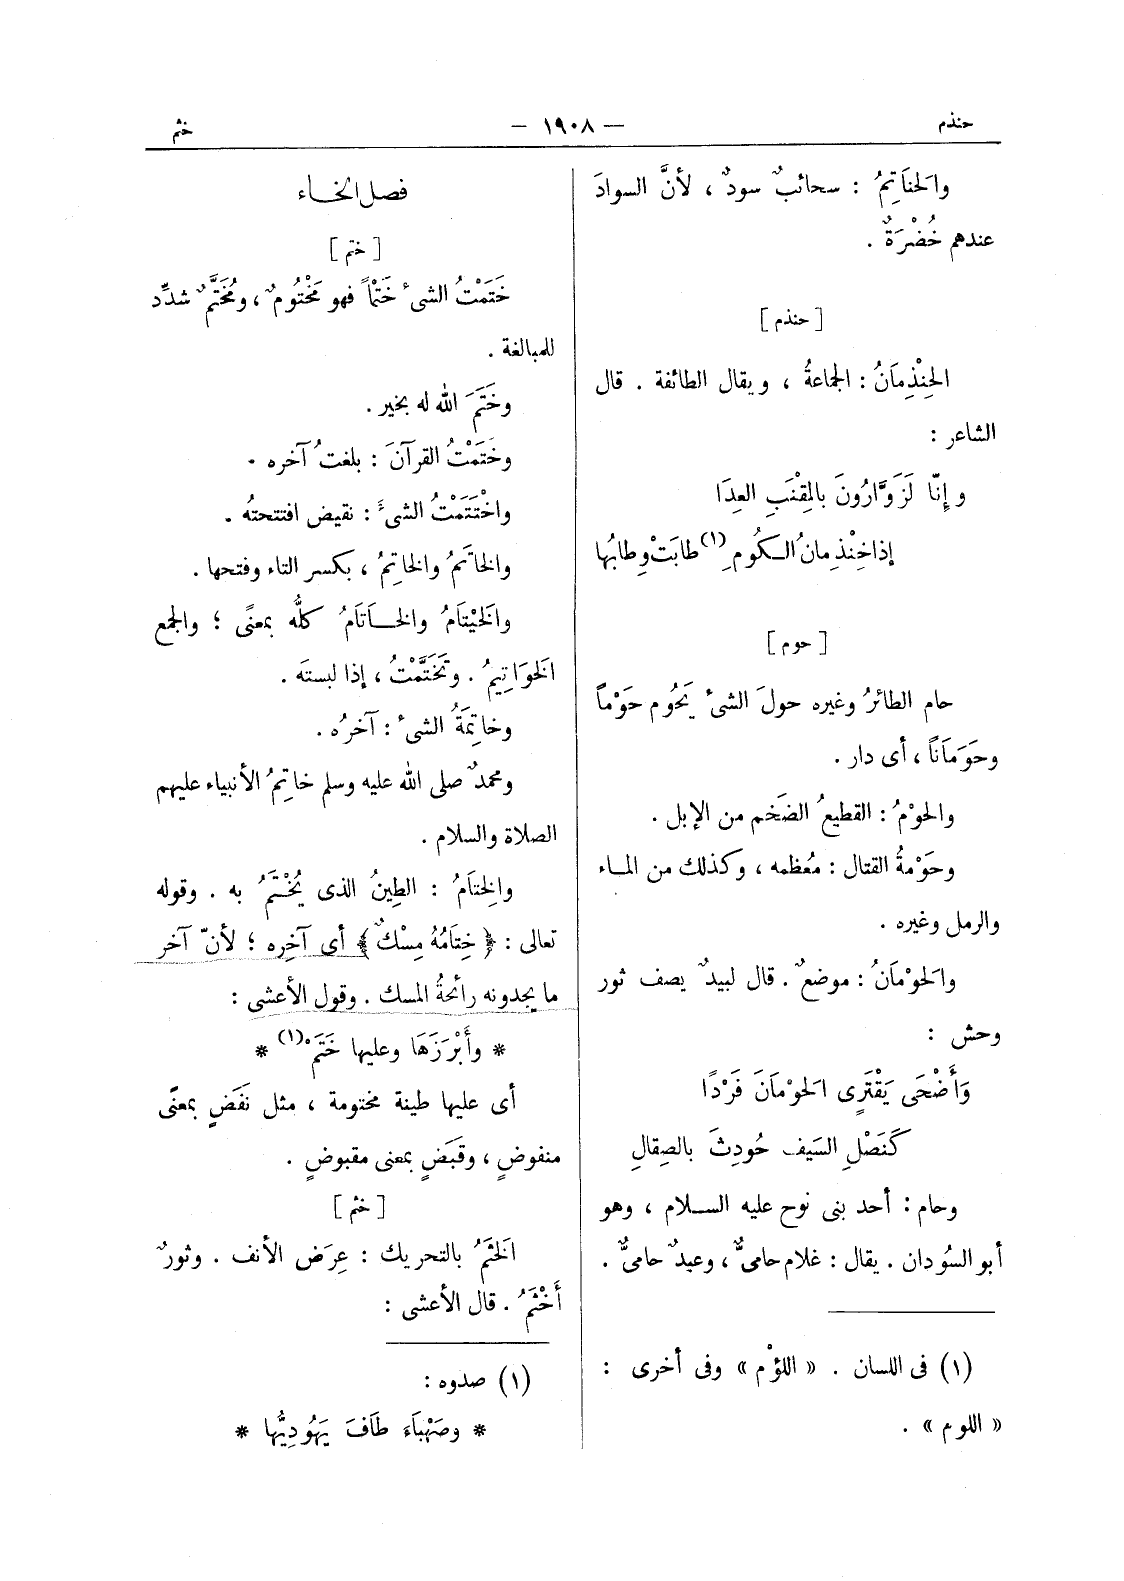 حنذم — ١٩٠٨ — خثم
والحَنَاتِمُ : سحائبٌ سودٌ ، لأنَّ السوادَ
عندهم خُضْرَةٌ .
[ حنذم ]
الحِنْذِمَانُ : الجماعةُ ، ويقال الطائفة . قال
الشاعر :
وإِنّا لَزَوَّارُونَ بالمِقْنَبِ العِدَا
إذا حِنْذِمانُ الكُومِ (١) طابَتْ وِطابُها
[ حوم ]
حام الطائرُ وغيره حولَ الشىْءِ يَحُوم حَوْماً
وحَوَمَاناً ، أى دار .
والحَوْمُ : القطيعُ الضَخم من الإبل .
وحَوْمةُ القتال : مُعظمه ، وكذلك من الماء
والرمل وغيره .
والحَوْمَانُ : موضعٌ . قال لبيدٌ يصف ثور
وحش :
وَأَضْحَى يَقْتَرِى الحَوْمَانَ فَرْدًا
كَنَصْلِ السَيفِ حُودِثَ بالصِقَالِ
وحام : أحد بنى نوح عليه السلام ، وهو
أبو السُودان . يقال : غلام حامىٌّ ، وعبدٌ حامىٌّ .
(١) فى اللسان . « اللؤْم » وفى أخرى :
« اللوم » .
فصل الخاء
[ ختم ]
خَتَمْتُ الشىءَ خَتْماً فهو مَخْتُومٌ ، ومُخَتَّمٌ شدِّد
للمبالغة .
وخَتَمَ الله له بخير .
وخَتَمْتُ القرآنَ : بلغتُ آخره .
واخْتَتَمْتُ الشىءَ : نقيض افتتحتهُ .
والخاتَمُ والخاتِمُ ، بكسر التاء وفتحها .
والخَيْتَامُ والخَاتَامُ كلُّه بمعنًى ؛ والجمع
الخَوَاتِيمُ . وتَخَتَّمْتُ ، إذا لبستَه .
وخاتِمَةُ الشىء : آخرُه .
ومحمدٌ صلى الله عليه وسلم خاتِمُ الأنبياء عليهم
الصلاة والسلام .
والخِتَامُ : الطِينُ الذى يُخْتَمُ به . وقوله
تعالى : ﴿ خِتَامُهُ مِسْكٌ ﴾ أى آخِره ؛ لأنّ آخر
ما يجدونه رائحةُ المسك . وقول الأعشى :
* وأَبْرَزَهَا وعليها خَتَمْ (١) *
أى عليها طينة مختومة ، مثل نَفَضٍ بمعنًى
منفوضٍ ، وقَبَضٍ بمعنى مقبوضٍ .
[ خثم ]
الخَثَمُ بالتحريك : عِرَض الأنف . وثورٌ
أَخْثَمُ . قال الأعشى :
(١) صدوه :
* وصَهْبَاءَ طَافَ يَهُودِيُّها *